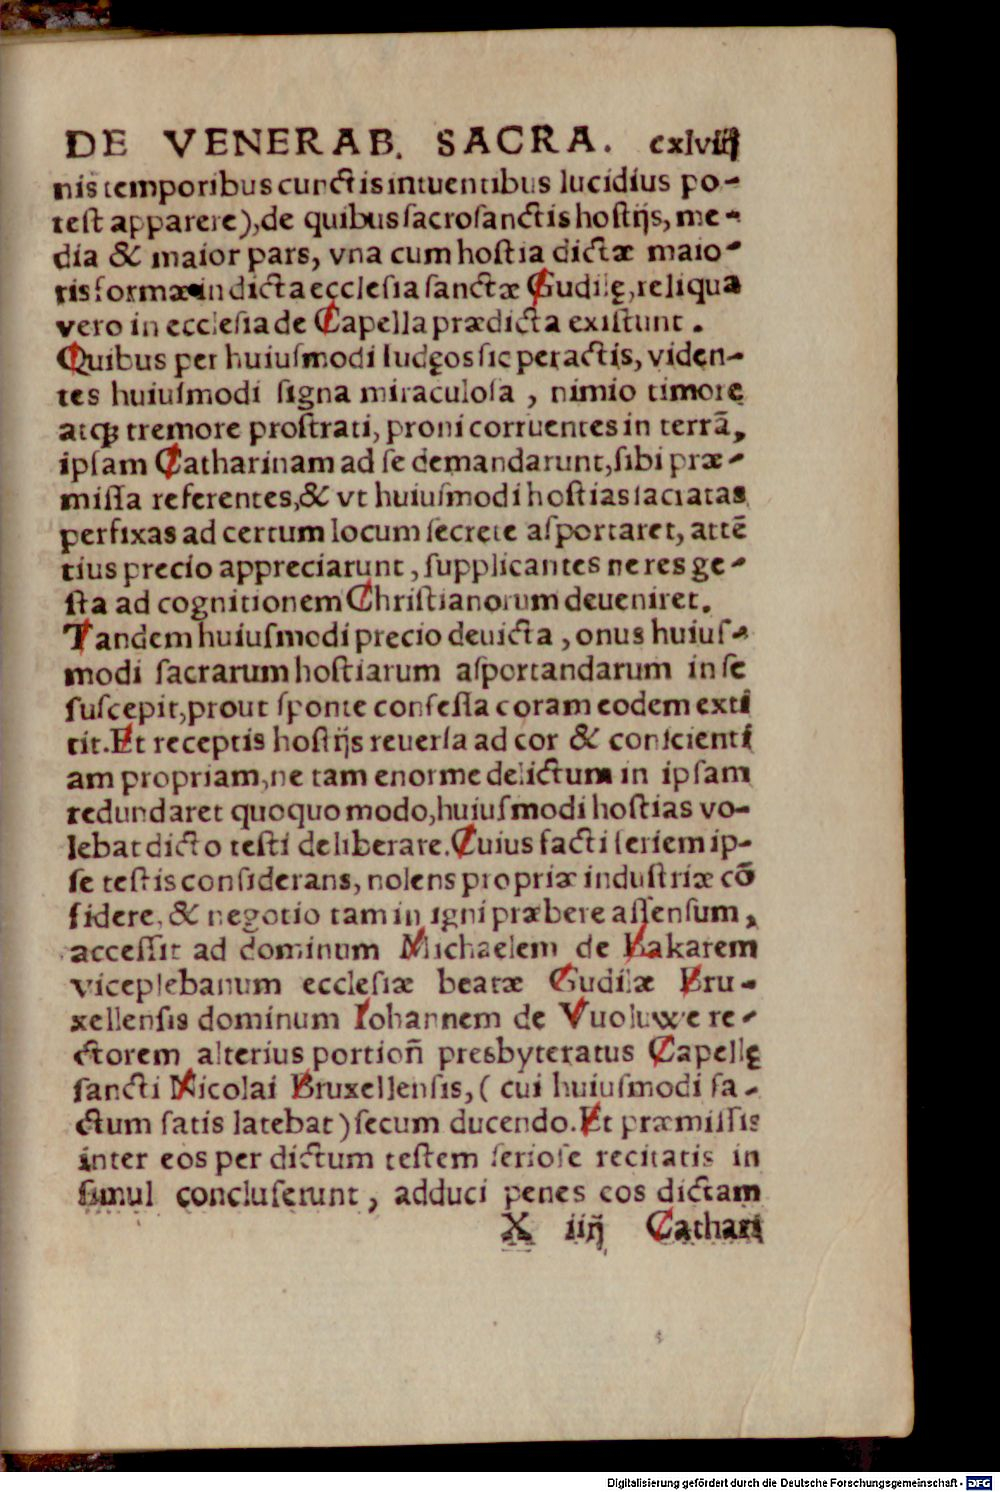 DE VENERAB. SACRA. cxlviiij
nis temporibus cunctis intuentibus lucidius po-
test apparere), de quibus sacrosanctis hostijs, me-
dia & maior pars, vna cum hostia dictæ maio-
ris formæ in dicta ecclesia sanctæ Gudilę, reliqua
vero in ecclesia de Capella prædicta existunt.
Quibus per huiusmodi Iudęos sic peractis, viden-
tes huiusmodi signa miraculosa, nimio timore
atqꝫ tremore prostrati, proni corruentes in terrā,
ipsam Catharinam ad se demandarunt, sibi præ-
missa referentes, & vt huiusmodi hostias saciatas
perfixas ad certum locum secrete asportaret, attē
tius precio appreciarunt, supplicantes ne res ge-
sta ad cognitionem Christianorum deueniret.
Tandem huiusmodi precio deuicta, onus huius-
modi sacrarum hostiarum asportandarum in se
suscepit, prout sponte confessa coram eodem exti
tit. Et receptis hostijs reuersa ad cor & conscienti
am propriam, ne tam enorme delictum in ipsam
redundaret quoquo modo, huiusmodi hostias vo-
lebat dicto testi deliberare. Cuius facti seriem ip-
se testis considerans, nolens propriæ industriæ cō
fidere, & negotio tam in igni præbere assensum,
accessit ad dominum Michaelem de Bakarem
viceplebanum ecclesiæ beatæ Gudilæ Bru-
xellensis dominum Iohannem de Vuoluwe re-
ctorem alterius portioñ presbyteratus Capellę
sancti Nicolai Bruxellensis, (cui huiusmodi fa-
ctum satis latebat) secum ducendo. Et præmissis
inter eos per dictum testem seriose recitatis in
simul concluserunt, adduci penes eos dictam
X iiij Cathari
Digitalisierung gefördert durch die Deutsche Forschungsgemeinschaft - DFG